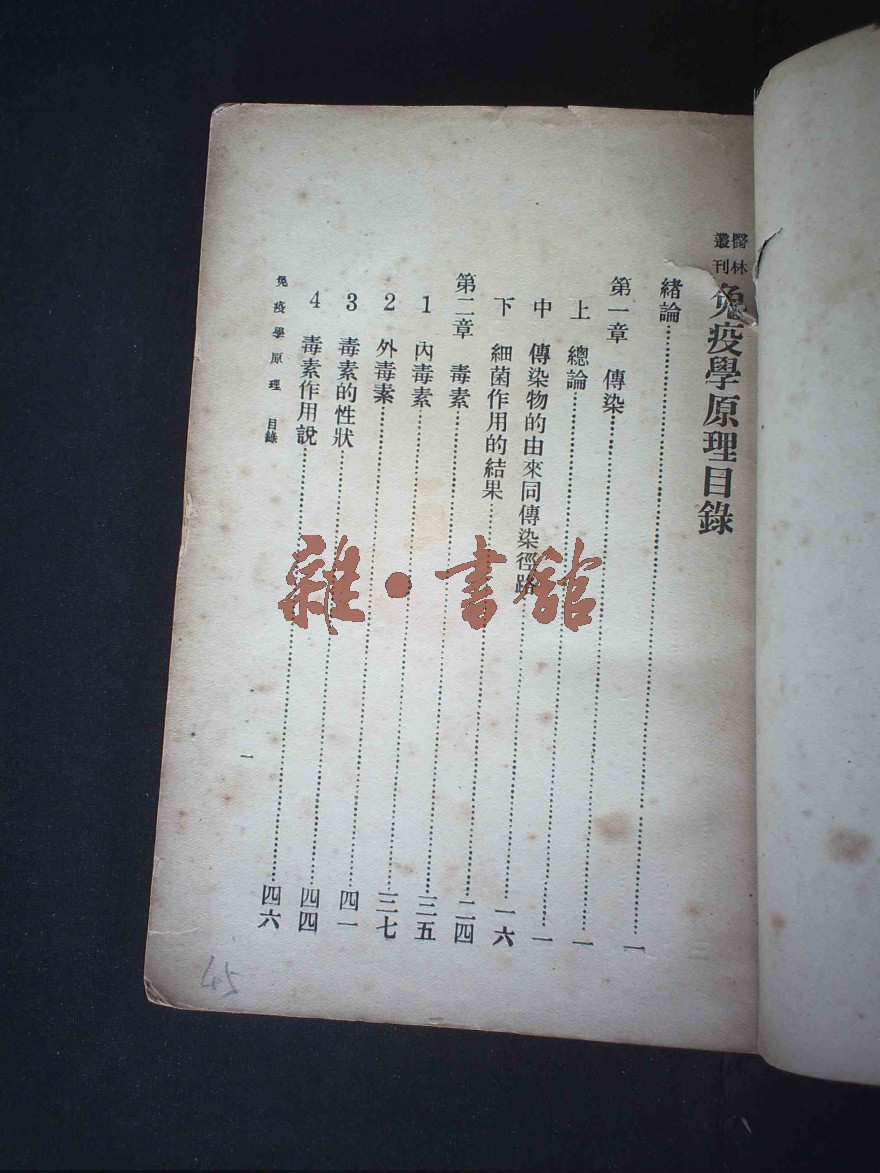 醫林叢刊 免疫學原理目錄
緒論……一
第一章 傳染……一
上 總論……一
中 傳染物的由來同傳染徑路……一六
下 細菌作用的結果……二四
第二章 毒素……三五
1 內毒素……三七
2 外毒素……四一
3 毒素的性狀……四四
4 毒素作用說……四六
免疫學原理 目錄
一
45
雜·書館